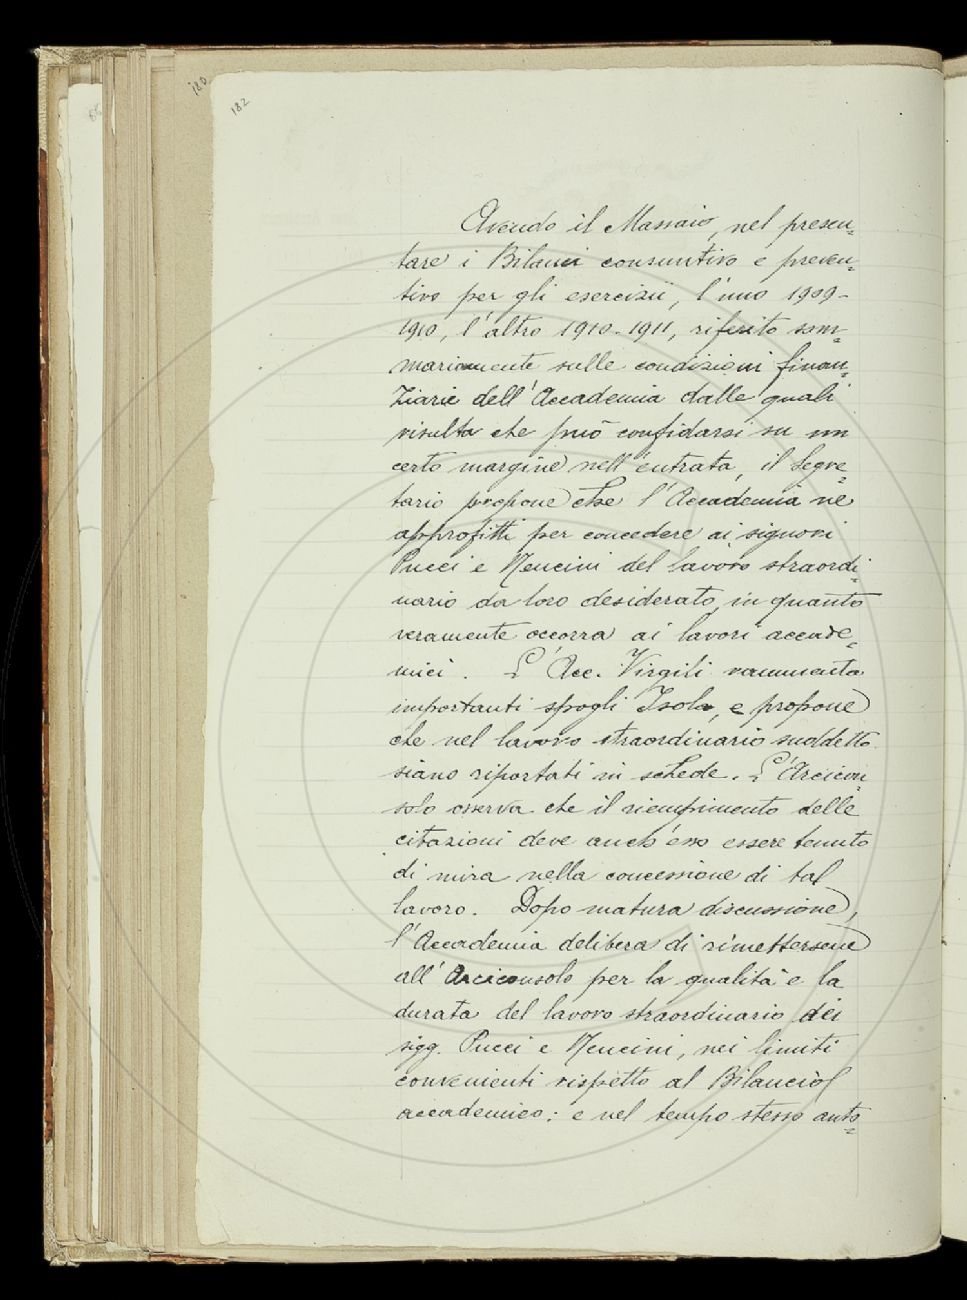 180
182
Avendo il Massaio, nel presen-
tare i Bilanci consuntivo e preven-
tivo per gli esercizii, l'uno 1909-
1910, l'altro 1910-1911, riferito som-
mariamente sulle condizioni finan-
ziarie dell'Accademia dalle quali
risulta che può confidarsi su un
certo margine nell'entrata, il Segre-
tario propone che l'Accademia ne
approfitti per concedere ai signori
Pucci e Nencini del lavoro straordi-
nario da loro desiderato, in quanto
veramente occorra ai lavori accade-
mici. L'Acc. Virgili rammenta
importanti spogli Isola, e propone
che nel lavoro straordinario suddetto
siano riportati in schede. L'Arcicon-
solo osserva che il riempimento delle
citazioni deve anch'esso essere tenuto
di mira nella concessione di tal
lavoro. Dopo matura discussione,
l'Accademia delibera di rimettersene
all'Arciconsolo per la qualità e la
durata del lavoro straordinario dei
sigg. Pucci e Nencini, nei limiti
convenienti rispetto al Bilancio
accademico: e nel tempo stesso auto-